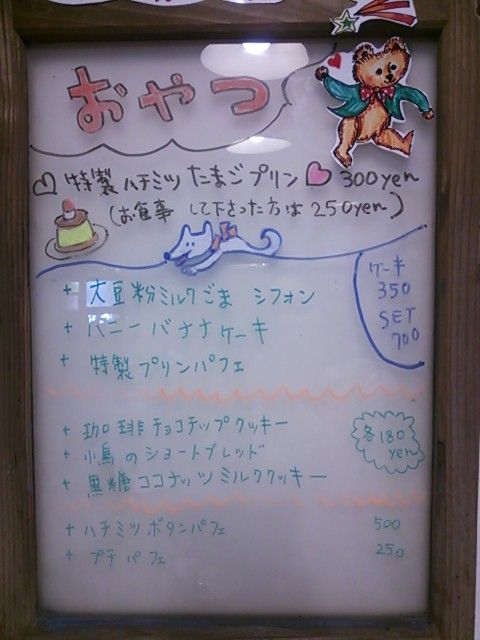 おやつ
特製 ハチミツ たまごプリン 300yen
(お食事して下さった方は 250yen)
ケーキ
350
SET
700
+ 大豆粉ミルクごま シフォン
+ ハニーバナナケーキ
+ 特製プリンパフェ
+ 珈琲チョコチップクッキー
+ 小鳥のショートブレッド
+ 黒糖ココナッツミルククッキー
各180
yen
+ ハチミツボタンパフェ 500
+ プチパフェ 250